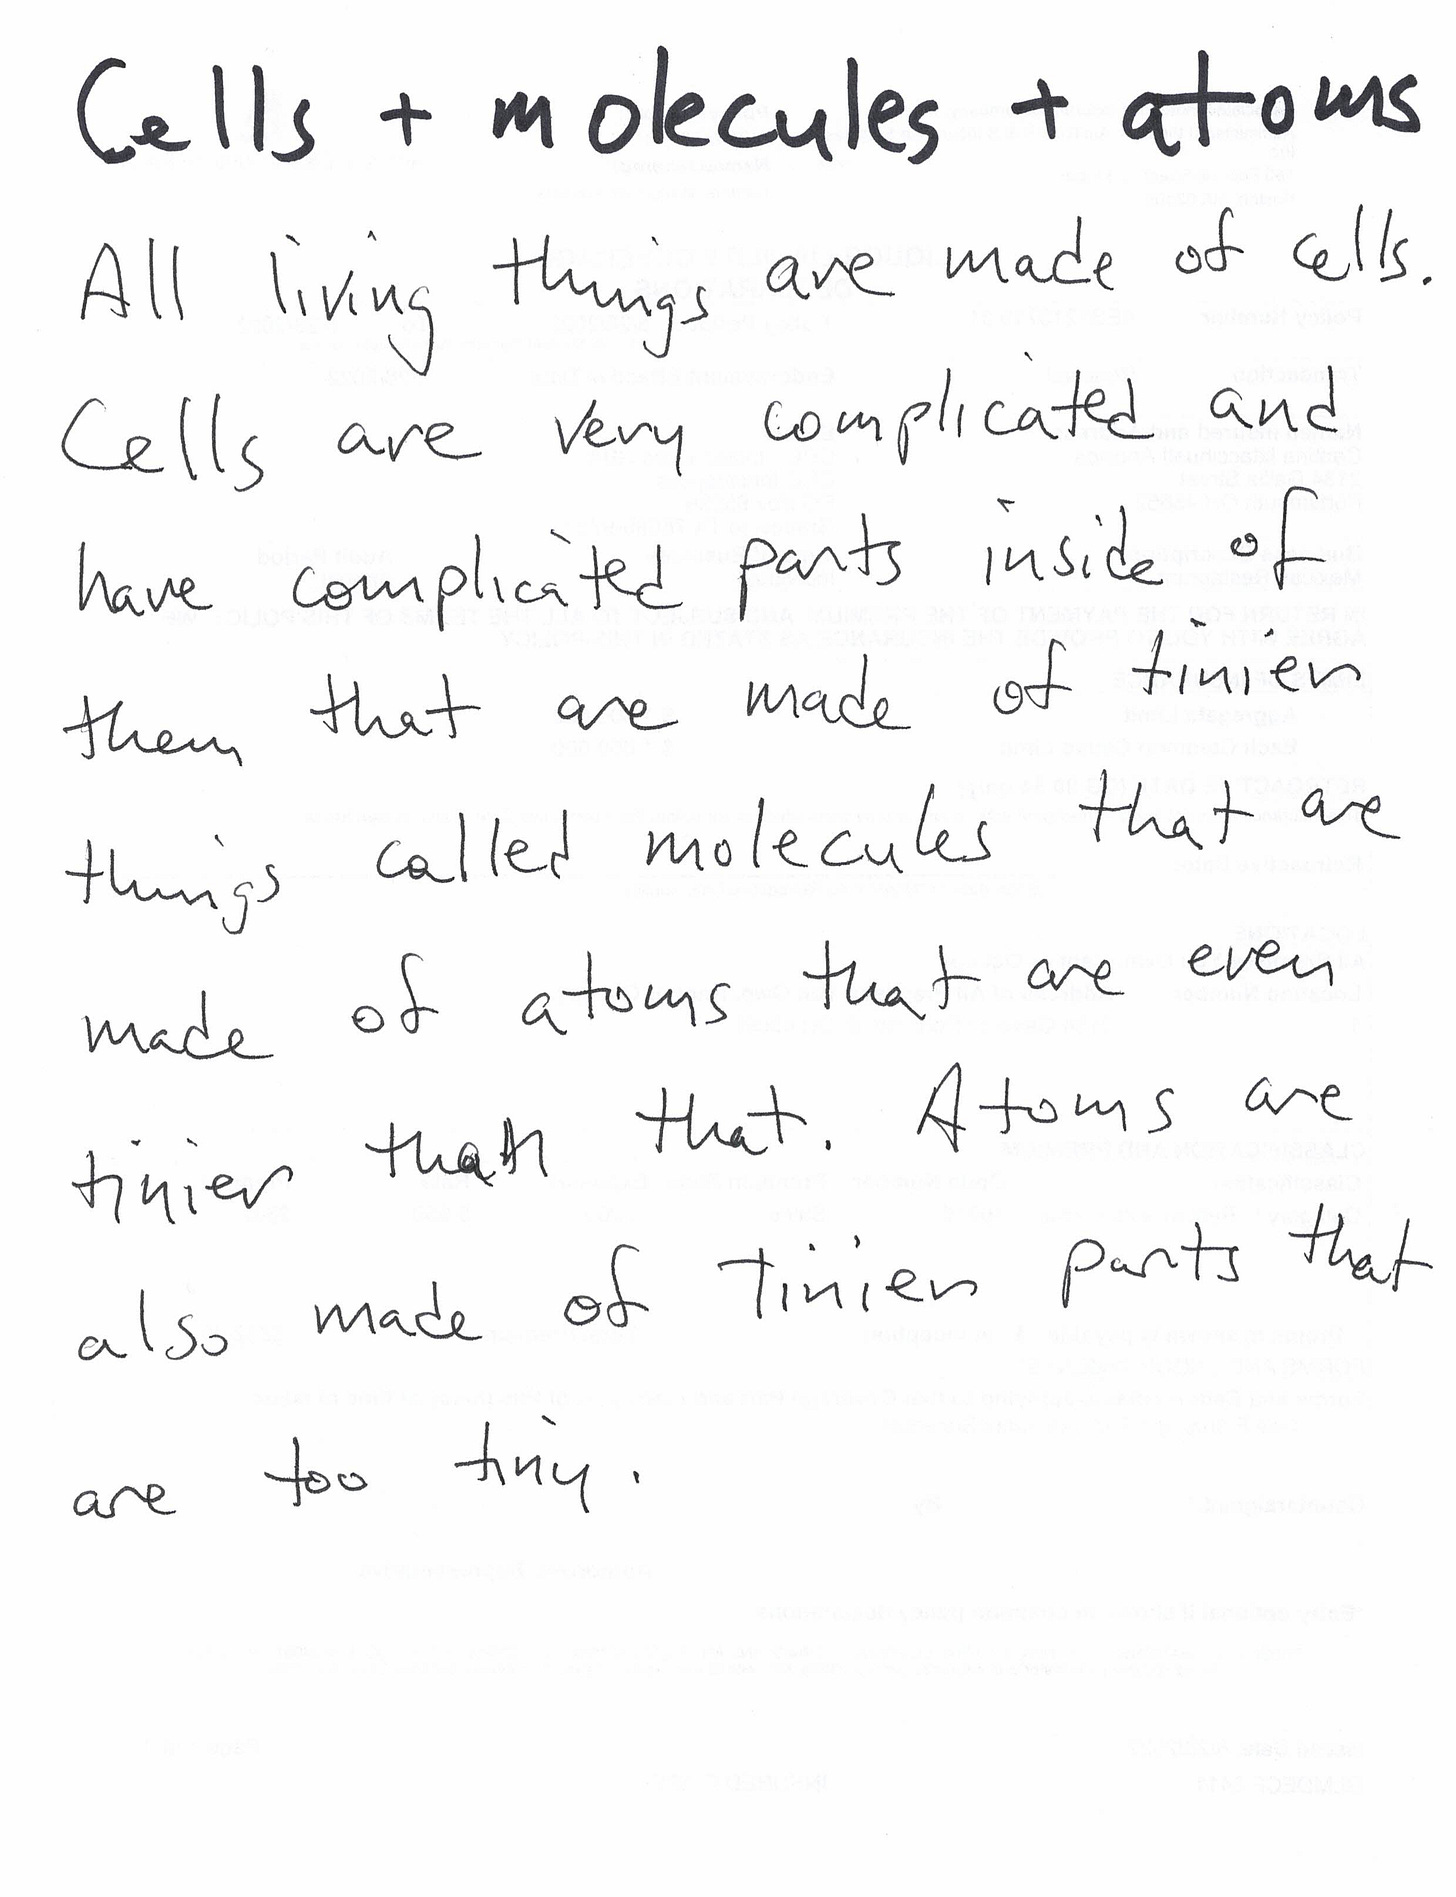 Cells + molecules + atoms
All living things are made of cells.
Cells are very complicated and
have complicated parts inside of
them that are made of tinier
things called molecules that are
made of atoms that are even
tinier than that. Atoms are
also made of tinier parts that
are too tiny.